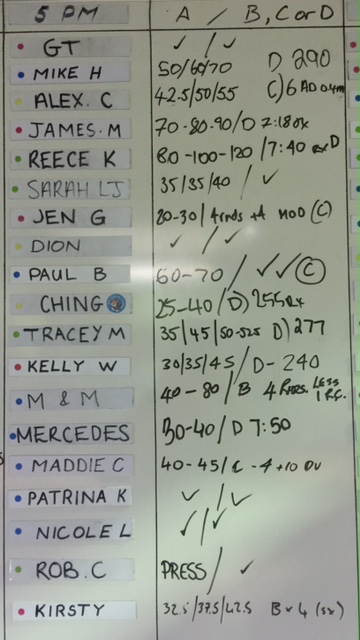 5 PM A / B, C or D
GT ✓ / ✓
MIKE H 50/60/70 D 290
ALEX. C 42.5/50/55 C) 6
JAMES. M 70-80-90/D 7:18 rx
REECE K 80-100-120 / 7:40 D
SARAH LJ 35/35/40 / ✓
JEN G 20-30 / 4rnds +A MOD (C)
DION ✓ / ✓
PAUL B 60-70 / ✓✓ (C)
CHING 25-40 / D) 255 Rx
TRACEY M 35/45/50-52.5 D) 277
KELLY W 30/35/45 / D-240
M & M 40-80 / B 4 LESS
MERCEDES 30-40 / D 7:50
MADDIE C 40-45 / C -4+10
PATRINA K ✓ / ✓
NICOLE L ✓ / ✓
ROB. C PRESS / ✓
KIRSTY 32.5/37.5/42.5 B